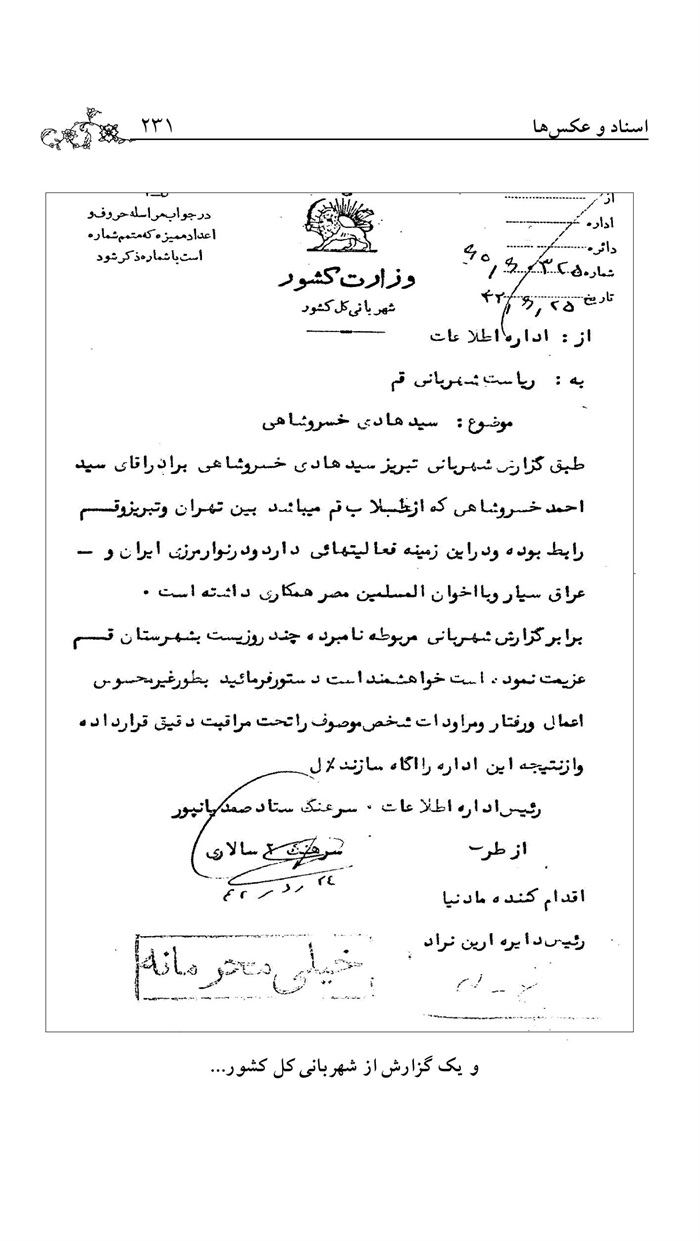 اسناد و عکس‌ها ۲۳۱
در جواب مراسله حروف و
اعداد ممیزه که متمم شماره
است با شماره ذکر شود
وزارت کشور
شهربانی کل کشور
از
اداره
دائره
شماره
تاریخ ۴۲٫۶٫۲۵
از : اداره اطلاعات
به : ریاست شهربانی قم
موضوع : سید هادی خسروشاهی
طبق گزارش شهربانی تبریز سید هادی خسروشاهی برادر اقای سید
احمد خسروشاهی که از طلاب قم میباشد بین تهران و تبریز و قم
رابط بوده و در این زمینه فعالیتهائی دارد و در نوار مرزی ایران و –
عراق سیار و با اخوان المسلمین مصر همکاری داشته است .
برابر گزارش شهربانی مربوطه نامبرده چند روزیست بشهرستان قم
عزیمت نموده است خواهشمند است دستور فرمائید بطور غیر محسوس
اعمال و رفتار و مراودات شخص موصوف را تحت مراقبت دقیق قرار داده
و از نتیجه این اداره را اگاه سازند
رئیس اداره اطلاعات . سرهنگ ستاد صمدیانپور
از طرف سرهنگ ۲ سالاری
اقدام کننده مادنیا
رئیس دایره ارین نراد
خیلی محرمانه
و یک گزارش از شهربانی کل کشور...